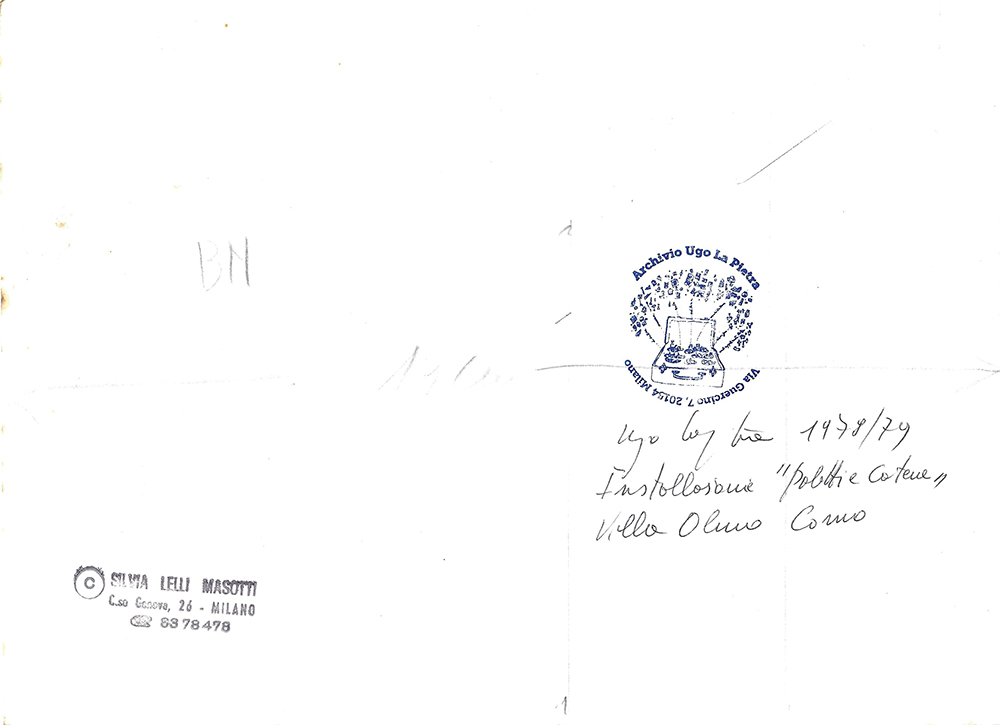 BN
Archivio Ugo La Pietra
Via Guercino 7, 20154 Milano
Ugo La Pietra 1978/79
Installazione "paletti e catene"
Villa Olmo Como
© SILVIA LELLI MASOTTI
C.so Genova, 26 - MILANO
☎ 8378478
1